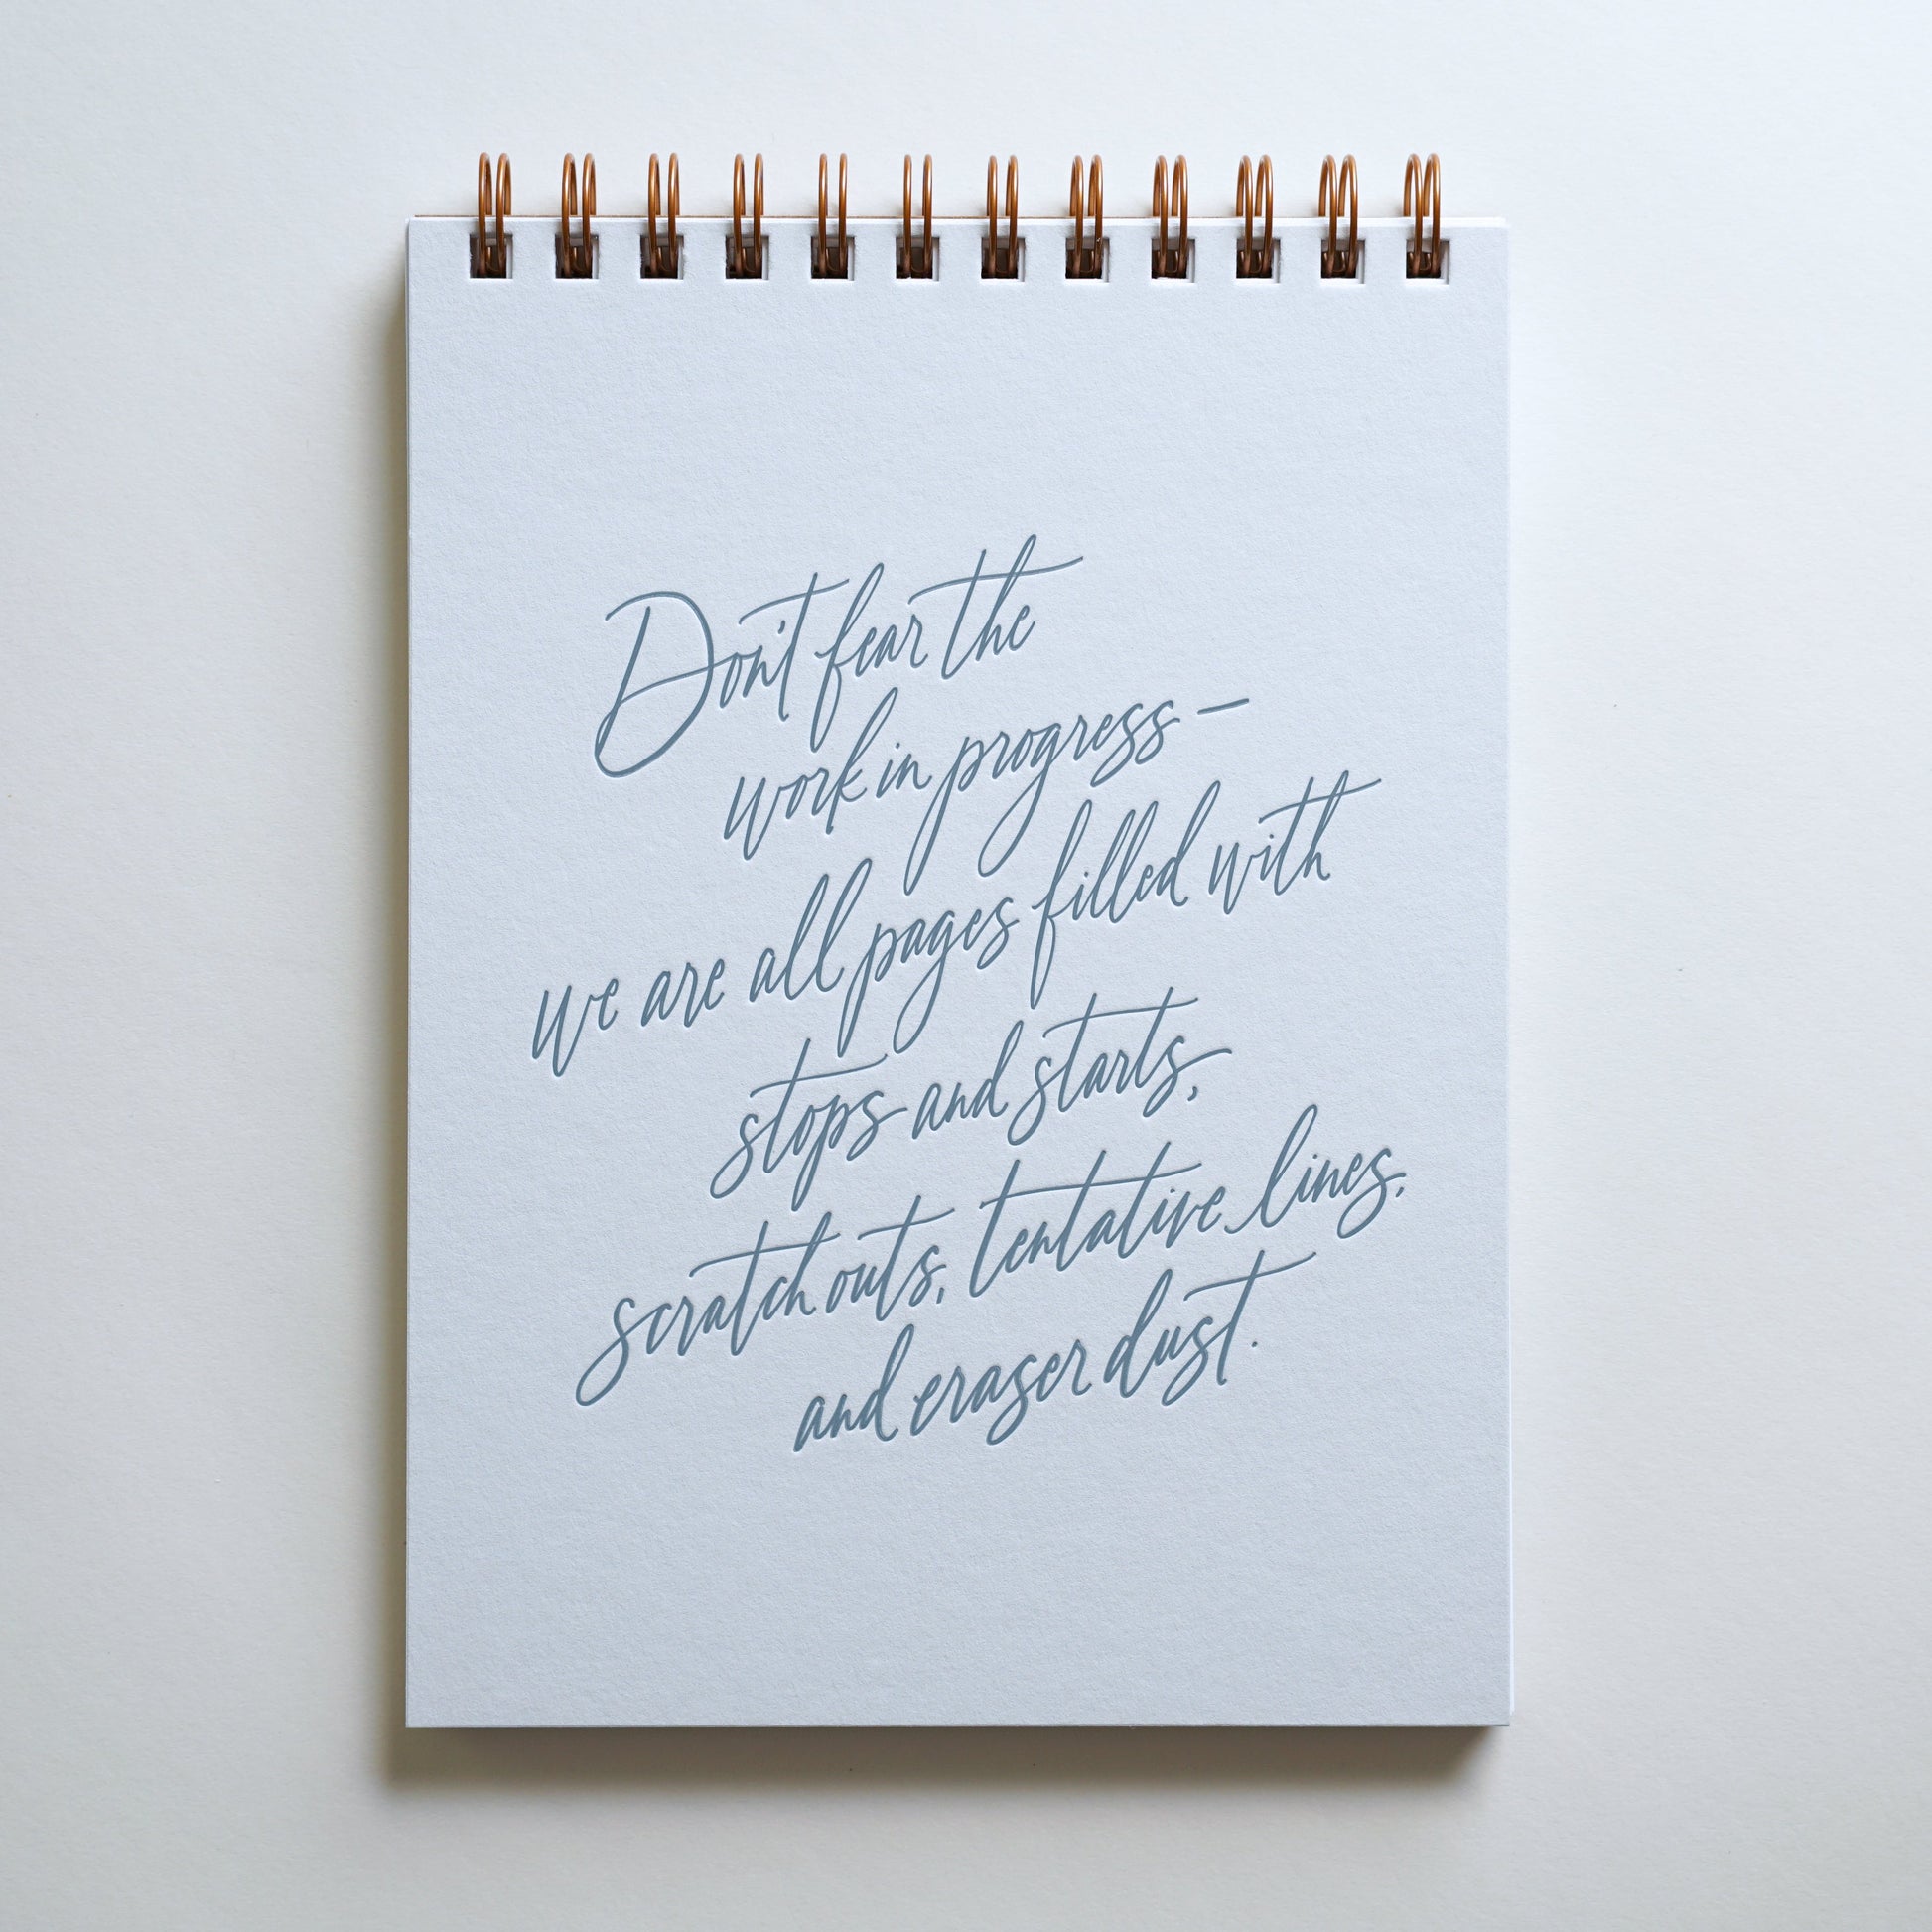 Don't fear the
work in progress —
we are all pages filled with
stops and starts,
scratch outs, tentative lines,
and eraser dust.